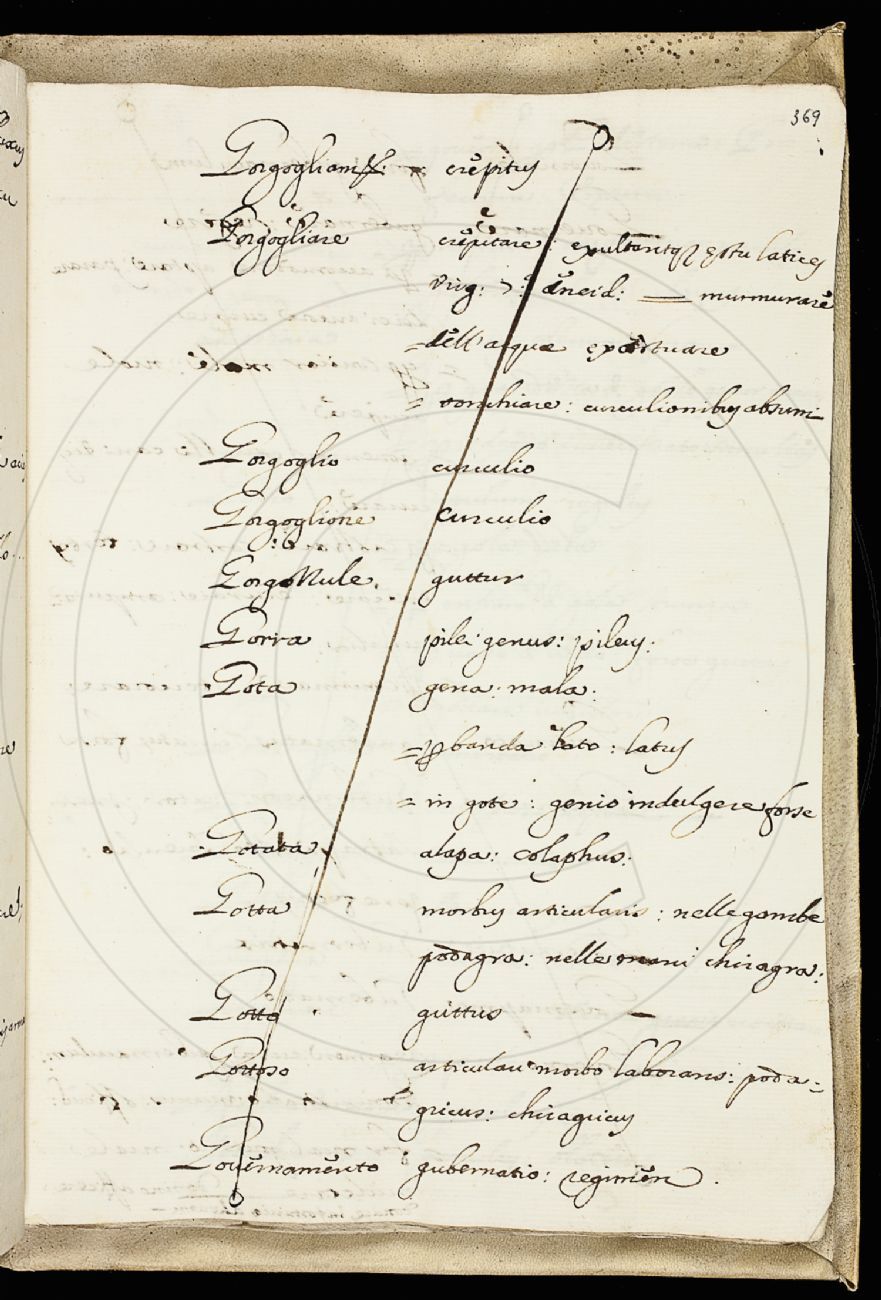 369
Gorgogliam crepitus
Gorgogliare crepitare: exultantq3 æstu latices
Virg: 7: Æneid: — murmurare
= dell'acquæ exæstuare
= tonchiare: curculionibus absumi
Gorgoglio curculio
Gorgoglione curculio
Gorgozzule guttur
Gorra pilei genus: pileus:
Gota gena: mala:
= p banda e lato: latus
= in gote: genio indulgere forse
Gotata alapa: colaphus:
Gotta morbus articularis: nelle gambe
podagra: nelle mani chiragra:
Gotto guttus —
Gottoso articulari morbo laborans: poda=
gricus: chiragricus
Governamento gubernatio: regimen.